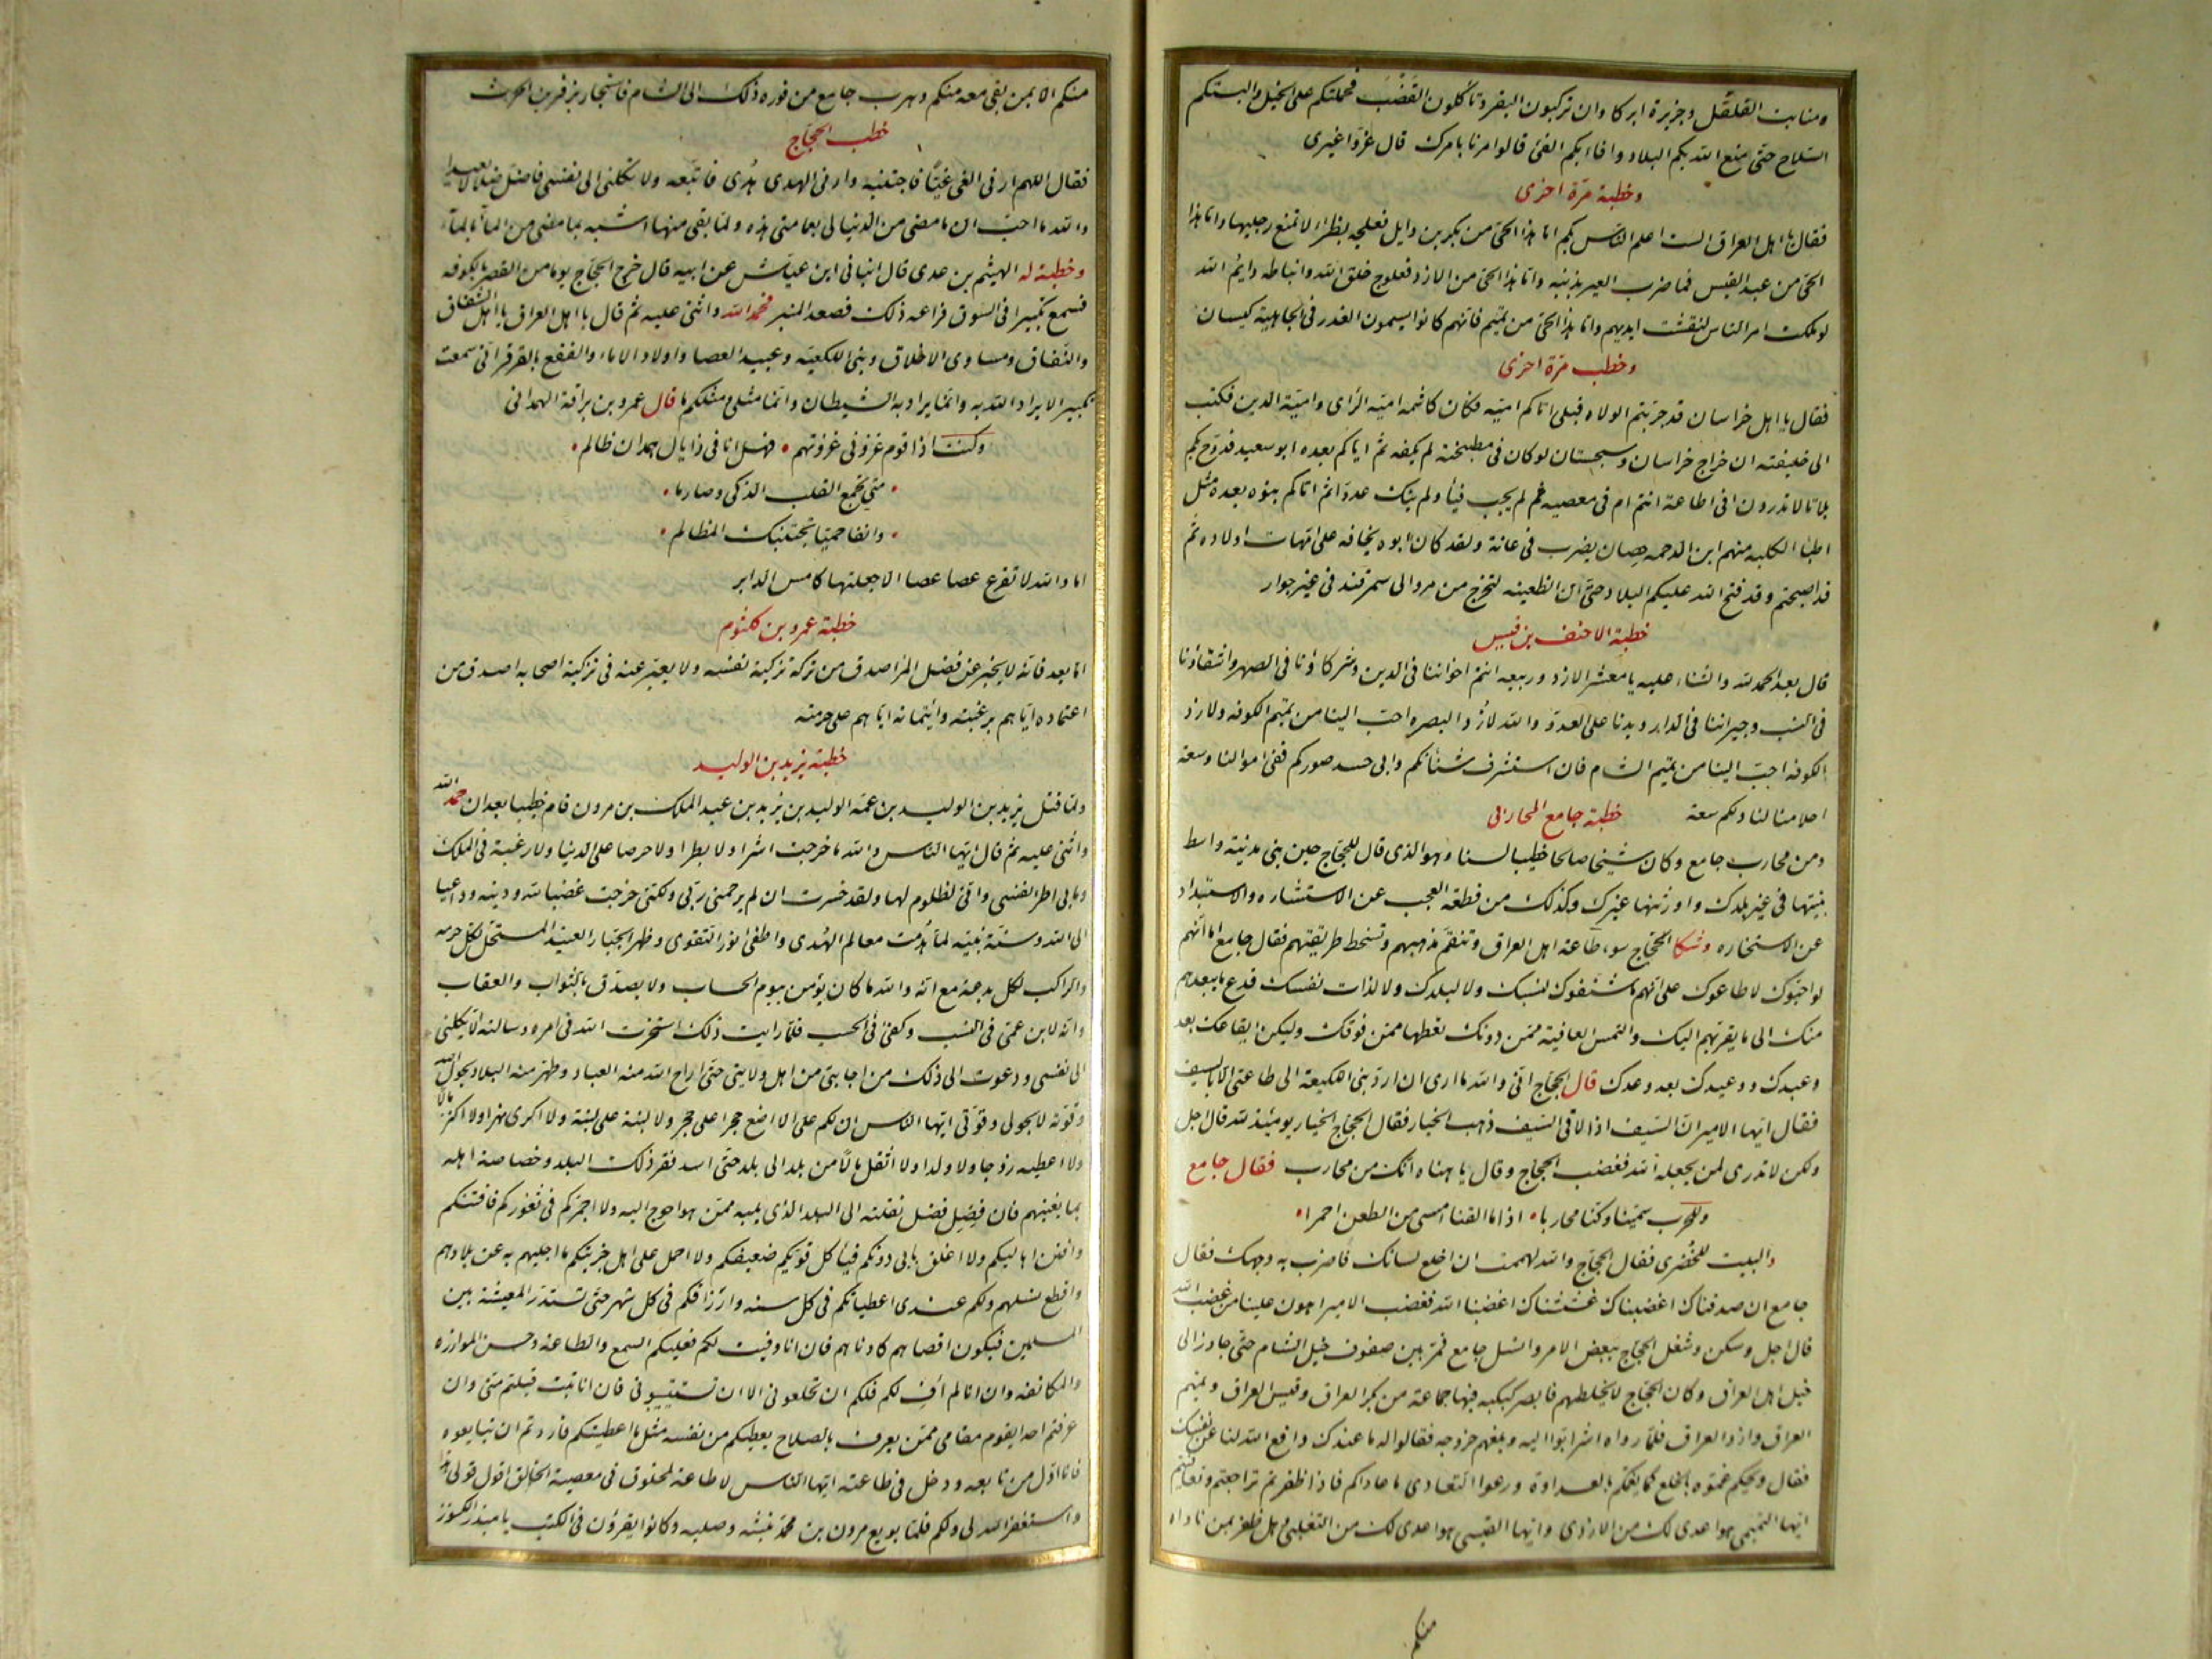 ومنابت القلقل وجزيرة ابركاوان تركبون البقر وتأكلون القضب فحملتكم على الخيل والبستكم
السلاح حتى منع الله بكم البلاد وافاء بكم الفئ قالوا مرنا بامرك قال غزوا غيرى
وخطبة مرة اخرى
فقال يا اهل العراق الست اعلم الناس بكم اما هذا الحى من بكر بن وايل فعلجه بظراء لا تمنع رجليها واما هذا
الحى من عبد القيس فما ضرب العير بذنبه واما هذا الحى من الازد فعلوج خلق الله وانباطه وايم الله
لو ملكت امر الناس لنقشت ايديهم واما هذا الحى من تميم فانهم كانوا يسمون الغدر فى الجاهلية كيسان
وخطب مرة اخرى
فقال يا اهل خراسان قد جربتم الولاه قبلى اتاكم اميه فكان كاسمه اميه الراى وامية الدين فكتب
الى خليفته ان خراج خراسان وسجستان لو كان فى مطبخته لم يكفه ثم اتاكم بعده ابو سعيد فدوخ بكم
بلاثا لا تدرون افى طاعة انتم ام فى معصيه ثم لم يجب فيأ ولم ينك عدوا ثم اتاكم بنوه بعده مثل
اطبا الكلبه منهم ابن الدحمه حصان يضرب فى عانة ولقد كان ابوه يخافه على امهات اولاده ثم
قد اصبحتم وقد فتح الله عليكم البلاد حتى ان الظعينه لتخرج من مرو الى سمرقند فى غير جوار
خطبة الاحنف بن قيس
قال بعد الحمد لله والثناء عليه يا معشر الازد وربيعه انتم اخواننا فى الدين وشركاؤنا فى الصهر واشقاؤنا
فى النسب وجيراننا فى الدار ويدنا على العدو والله لازد البصره احب الينا من تميم الكوفه ولازد
الكوفه احب الينا من تميم الشام فان استشرف شنانكم وابى حسد صوركم ففى اموالنا وسعة
احلامنا لنا ولكم سعة خطبة جامع المحاربى
ومن محارب جامع وكان شيخا صالحا خطيبا لسنا وهو الذى قال للحجاج حين بنى مدنية واسط
بنيتها فى غير بلدك واورثتها غيرك وكذلك من قطعه العجب عن الاستشاره والاستبداد
عن الاستخاره وشكا الحجاج سوء طاعة اهل العراق وتنقم مذهبهم وتسخط طريقتهم فقال جامع اما انهم
لو احبوك لاطاعوك على انهم ما شنفوك لنسبك ولا لبلدك ولا لذات نفسك فدع ما يبعدهم
منك الى ما يقربهم اليك والتمس العافية ممن دونك تعطها ممن فوقك وليكن ايقاعك بعد
وعيدك ووعيدك بعد وعدك قال الحجاج انى والله ما ارى ان ارد بنى اللكيعه الى طاعتى الا بالسيف
فقال ايها الامير ان السيف اذا لاقى السيف ذهب الخيار فقال الحجاج الخيار يومئذ لله قال اجل
ولكن لا تدرى لمن يجعله الله فغضب الحجاج وقال يا هناه انك من محارب فقال جامع
وللحرب سمينا وكنا محاربا • اذا ما القنا امسى من الطعن احمرا •
والبيت للخضرى فقال الحجاج والله لهممت ان اخلع لسانك فاضرب به وجهك فقال
جامع ان صدقناك اغضبناك غششناك اغضبنا الله فغضب الامير اهون علينا من غضب الله
قال اجل وسكن وشغل الحجاج ببعض الامر وانسل جامع فمر بين صفوف خيل الشام حتى جاوز الى
خيل اهل العراق وكان الحجاج لا يخلطهم فابصر كبكبه فيها جماعة من بكر العراق وقيس العراق وتميم
العراق وازد العراق فلما رواه اشرابوا اليه وبلغهم خروجه فقالوا له ما عندك دافع الله لنا عن نفسك
فقال ويحكم عموه بالخلع كما يعمكم بالعداوة ودعوا التعادى ما عاداكم فاذا ظفرتم تراجعتم وتعافيتم
ايها التميمى هو اعدى لك من الازدى وايها القيسى هو اعدى لك من التغلبى وهل ظفر بمن ناواه
منكم
منكم الا بمن بقى معه منكم وهرب جامع من فوره ذلك الى الشام فاستجار بزفر بن الحرث
خطب الحجاج
فقال اللهم ارنى الغى غيا فاجتنبه وارنى الهدى هدى فاتبعه ولا تكلنى الى نفسى فاضل ضلالا بعيدا
والله ما احب ان ما مضى من الدنيا لى بعمامتى هذه ولما بقى منها اشبه بما مضى من الماء بالماء
وخطبة له الهيثم بن عدى قال انبانى ابن عياش عن ابيه قال خرج الحجاج يوما من القصر بالكوفه
فسمع تكبيرا فى السوق فراعه ذلك فصعد المنبر فحمد الله واثنى عليه ثم قال يا اهل العراق يا اهل الشقاق
والنفاق ومساوى الاخلاق وبنى اللكيعه وعبيد العصا واولاد الاماء والفقع بالقرقر انى سمعت
تكبيرا لا يراد الله به وانما يراد به الشيطان وانما مثلى ومثلكم ما قال عمرو بن براقة الهمدانى
وكنت اذا قوم غزونى غزوتهم • فهل انا فى ذا يال همدان ظالم •
• متى تجمع القلب الذكى وصارما •
• وانفا حميا تجتنبك المظالم •
اما والله لا تقرع عصا عصا الا جعلتها كامس الدابر
خطبة عمرو بن كلثوم
اما بعد فانه لا يخبر عن فضل المرء اصدق من تركه تزكية نفسه ولا يعبر عنه فى تزكية اصحابه اصدق من
اعتماده اياهم برغبته وائتمانه اياهم على حرمته
خطبة يزيد بن الوليد
ولما قتل يزيد بن الوليد بن عمه الوليد بن يزيد بن عبد الملك بن مرون قام خطيبا بعد ان حمد الله
واثنى عليه ثم قال ايها الناس والله ما خرجت اشرا ولا بطرا ولا حرصا على الدنيا ولا رغبة فى الملك
وما بى اطراء نفسى وانى لظلوم لها ولقد خسرت ان لم يرحمنى ربى ولكنى خرجت غضبا لله ودينه وداعيا
الى الله وسنة نبيه لما هدمت معالم الهدى واطفى نور التقوى وظهر الجبار العنيد المستحل لكل حرمه
والراكب لكل بدعة مع انه والله ما كان يؤمن بيوم الحساب ولا يصدق بالثواب والعقاب
وانه لابن عمى فى النسب وكفئ فى الحسب فلما رايت ذلك استخرت الله فى امره وسالته الا يكلنى
الى نفسى ودعوت الى ذلك من اجابنى من اهل ولايتى حتى اراح الله منه العباد وطهر منه البلاد بحول الله
وقوته لا بحولى وقوتى ايها الناس ان لكم على الا اضع حجرا على حجر ولا لبنة على لبنة ولا اكرى نهرا ولا اكنز مالا
ولا اعطيه زوجا ولا ولدا ولا انقل مالا من بلد الى بلد حتى اسد فقر ذلك البلد وخصاصة اهله
بما يغنيهم فان فضل فضل نقلته الى البلد الذى يليه ممن هو احوج اليه ولا اجمركم فى ثغوركم فافتنكم
وافتن اهاليكم ولا اغلق بابى دونكم فيأكل قويكم ضعيفكم ولا احمل على اهل جزيتكم ما اجليهم به عن بلادهم
واقطع نسلهم ولكم عندى اعطياتكم فى كل سنه وارزاقكم فى كل شهر حتى تستدر المعيشة بين
المسلمين فيكون اقصاهم كادناهم فان انا وفيت لكم فعليكم السمع والطاعة وحسن الموازره
والمكانفه وان انا لم اف لكم فلكم ان تخلعونى الا ان تستتيبونى فان انا تبت قبلتم منى وان
عرفتم احدا يقوم مقامى ممن يعرف بالصلاح يعطيكم من نفسه مثل ما اعطيتكم فاردتم ان تبايعوه
فانا اول من تابعه ودخل فى طاعته ايها الناس لا طاعة لمخلوق فى معصية الخالق اقول قولى هذا
واستغفر الله لى ولكم فلما بويع مرون بن محمد نبشه وصلبه وكانوا يقرؤن فى الكتب يا مبذر الكنوز